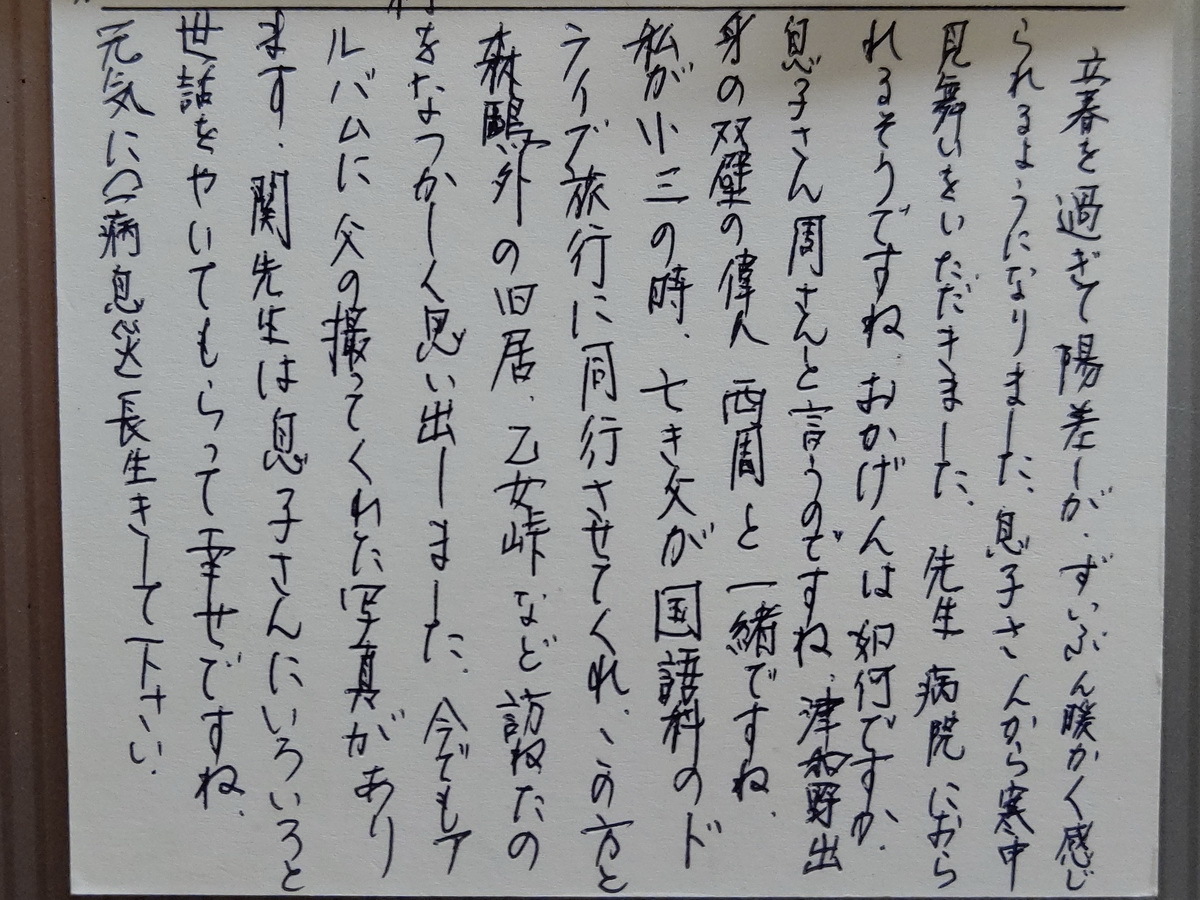 立春を過ぎて陽差しが、ずいぶん暖かく感じ
られるようになりました。息子さんから寒中
見舞いをいただきました。先生 病院におら
れるそうですね。おかげんは如何ですか。
息子さん周さんと言うのですね。津和野出
身の双璧の偉人 西周と一緒ですね。
私が小三の時、亡き父が国語科のド
ライブ旅行に同行させてくれ、この方と
森鷗外の旧居、乙女峠など訪ねたの
をなつかしく思い出しました。今でもア
ルバムに父の撮ってくれた写真があり
ます。関先生は息子さんにいろいろと
世話をやいてもらって幸せですね。
元気に病息災長生きして下さい。